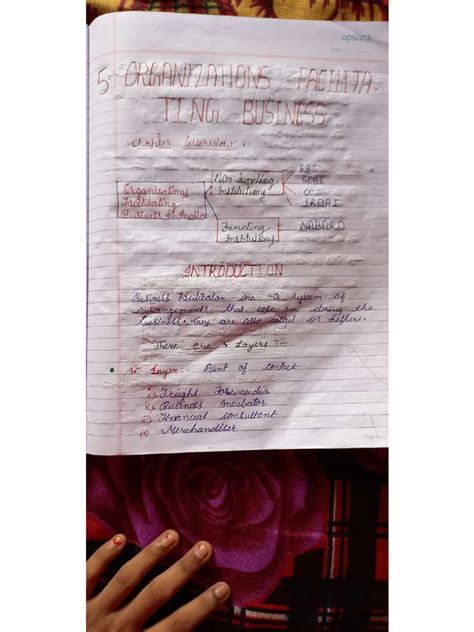 apsara
5. ORGANIZATIONS FACILITA-
TING BUSINESS
Chapter Overview :-
Organisations
Facilitating
Business In India
Non Funding
Institutions
RBI
SEBI
CCI
IRDAI
Funding
Institutions
NABARD
INTRODUCTION
Business Facilitator are a system of
arrangements that take in during the
business. They are also called as helpers.
There are 3 Layers :-
1st Layer:- Point of Contact
i) Freight Forwarder
ii) Business Incubator
iii) Financial Consultant
iv) Merchandiser